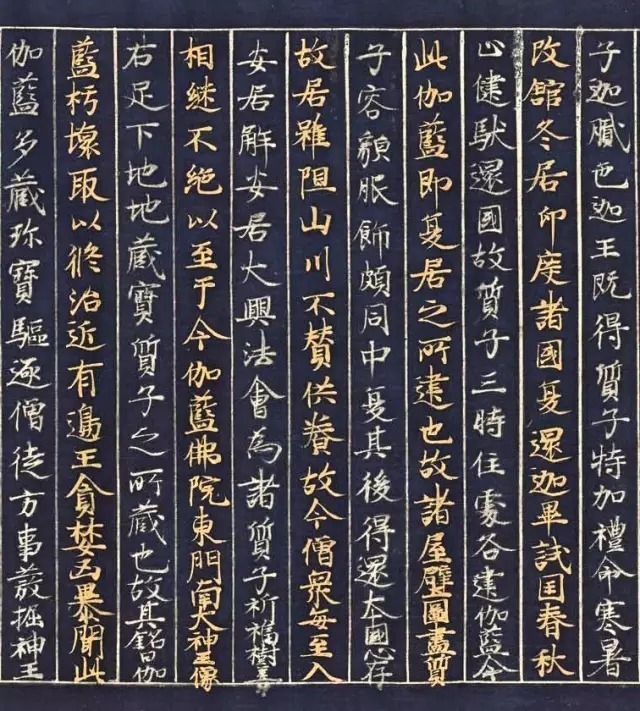 子迦膩色迦王既得質子特加禮命寒暑
改館冬居印度諸國夏還迦畢試国春秋
止健馱邏國故質子三時住處各建伽藍今
此伽藍即夏居之所建也故諸屋壁圖畫質
子容貌服飾頗同中夏其後得還本國心存
故居雖阻山川不賛供養故今僧眾每至入
安居解安居大興法會為諸質子祈福樹善
相継不絕以至于今伽藍佛院東門南大神王像
右足下地地藏寶質子之所藏也故其銘曰伽
藍朽壞取以修治近有邊王貪婪凶暴聞此
伽藍多藏珎寶驅逐僧徒方事發掘神王